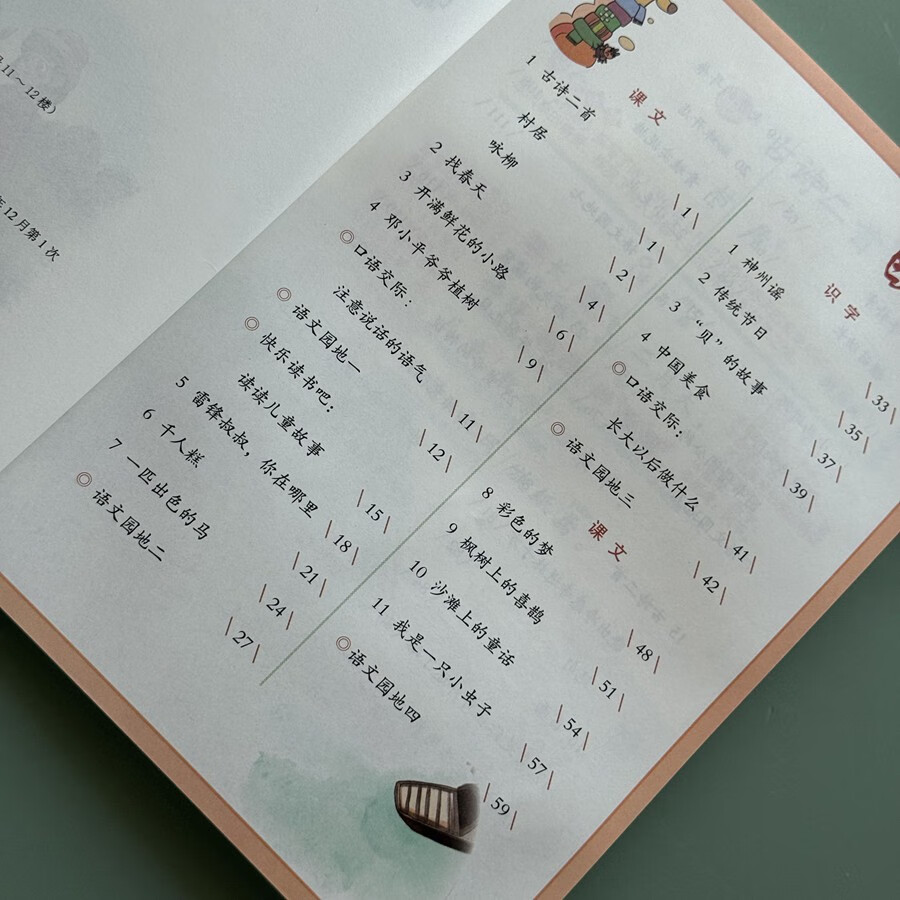 11～12楼）
年12月第1次
课文
1 古诗二首 \1\
村居 \1\
咏柳 \2\
2 找春天 \4\
3 开满鲜花的小路 \6\
4 邓小平爷爷植树 \9\
◎口语交际：
注意说话的语气 \11\
◎语文园地一 \12\
◎快乐读书吧：
读读儿童故事 \15\
5 雷锋叔叔，你在哪里 \18\
6 千人糕 \21\
7 一匹出色的马 \24\
◎语文园地二 \27\
识字
1 神州谣 \33\
2 传统节日 \35\
3 “贝”的故事 \37\
4 中国美食 \39\
◎口语交际：
长大以后做什么 \41\
◎语文园地三 \42\
课文
8 彩色的梦 \48\
9 枫树上的喜鹊 \51\
10 沙滩上的童话 \54\
11 我是一只小虫子 \57\
◎语文园地四 \59\